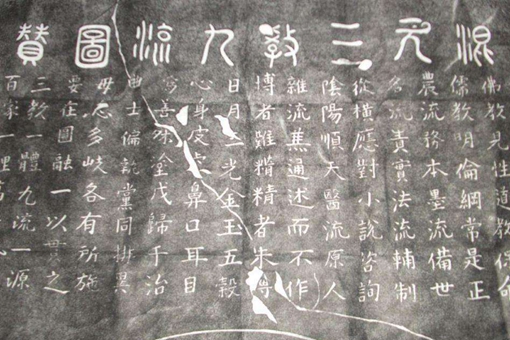 混元三教九流圖贊
佛教見性道教保命
儒教明倫綱常是正
農流務本墨流備世
名流責實法流輔制
從橫應對小說咨詢
陰陽順天醫流原人
雜流兼通述而不作
博者難精精者未博
日月三光金玉五穀
心身皮膚鼻口耳目
為善殊塗咸歸于治
曲士偏執黨同排異
毋患多岐各有所施
要在圓融一以貫之
三教一體九流一源
百家一理萬